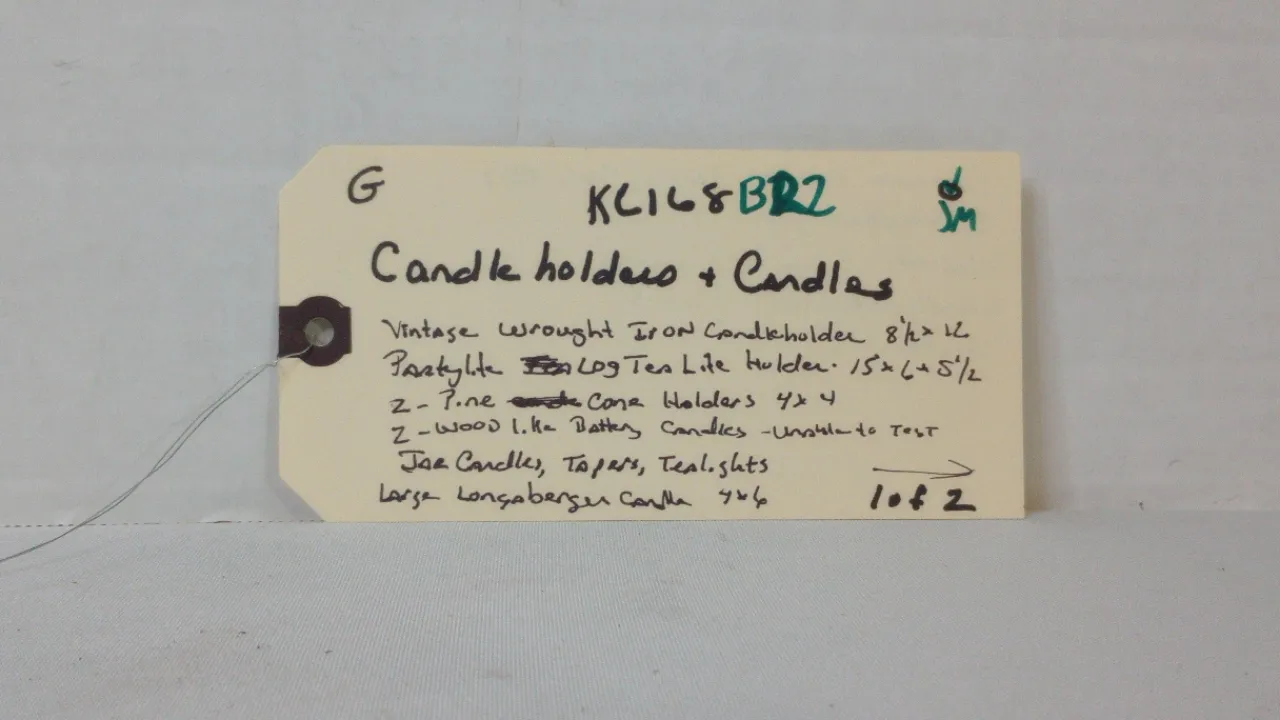 G
KL168 BR2
JM
Candle holders + Candles
Vintage Wrought Iron Candleholder 8 1/2 x 12
Partylite Log Tea Lite Holder. 15 x 6 x 5 1/2
2 - Pine Cone Holders 4x4
2 - Wood like Battery Candles - Unable to Test
Jar Candles, Tapers, Tealights
Large Longaberger Candle 4x6
1 of 2